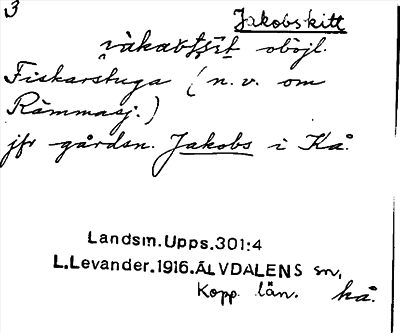 3
Jakobskitt
oböjl.
Fiskarstuga (n. v. om
Rämmasj.)
jfr gårdsn. Jakobs i Kå.
Landsm. Upps. 301:4
L. Levander. 1916. ÄLVDALENS sn,
Kopp. län. kå.